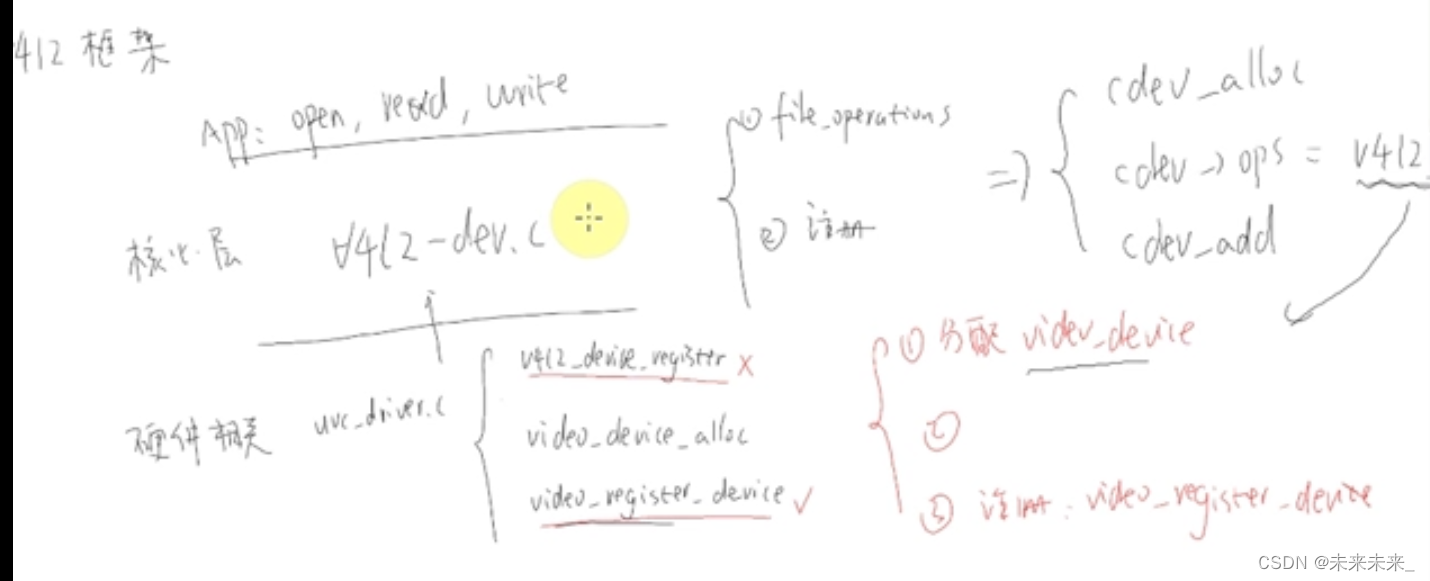 v4l2 框架
App: open, read, write
核心层 v4l2-dev.c
① file_operations
② 注册
=> cdev_alloc
cdev->ops = v4l2
cdev_add
硬件相关 uvc_driver.c
v4l2_device_register ×
video_device_alloc
video_register_device ✓
① 分配 video_device
②
③ 注册: video_register_device
CSDN @未来未来_